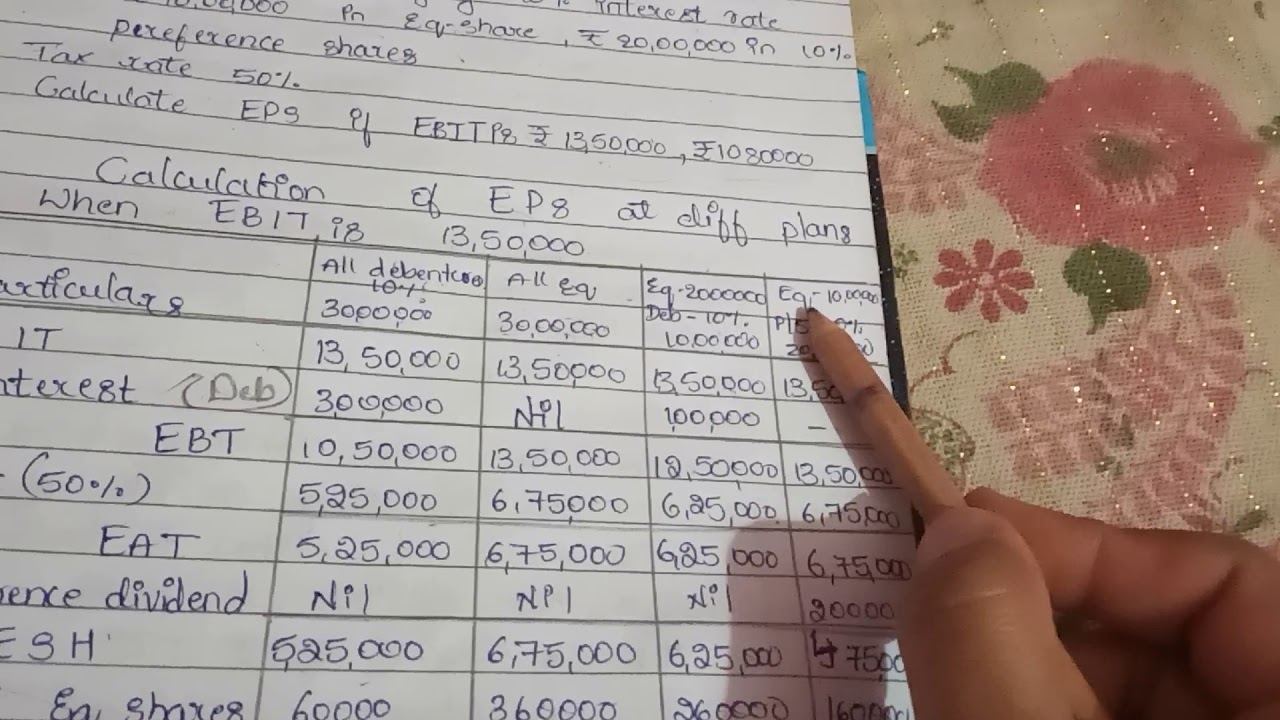 0,00,000 in Eq-share, ₹ 20,00,000 in 10%
interest rate
pereference shares.
Tax rate 50%.
Calculate EPS if EBIT is ₹ 13,50,000, ₹1080000
Calculation of EPS at diff plans
When EBIT is 13,50,000
articulars All debentures 10% 3000,000 All Eq 30,00,000 Eq-2000000 Deb-10% 10,00,000 Eq-10,00000
IT 13,50,000 13,50000 13,50,000 13,50
nterest (Deb) 300,000 Nil 100,000 -
EBT 10,50,000 13,50,000 12,50,000 13,50,000
(50%) 5,25,000 6,75,000 6,25,000 6,75,000
EAT 5,25,000 6,75,000 6,25,000 6,75,000
ence dividend Nil Nil Nil 20000
ESH 5,25,000 6,75,000 6,25,000 4,7500
Eq. shares 60000 360000 260000 160000